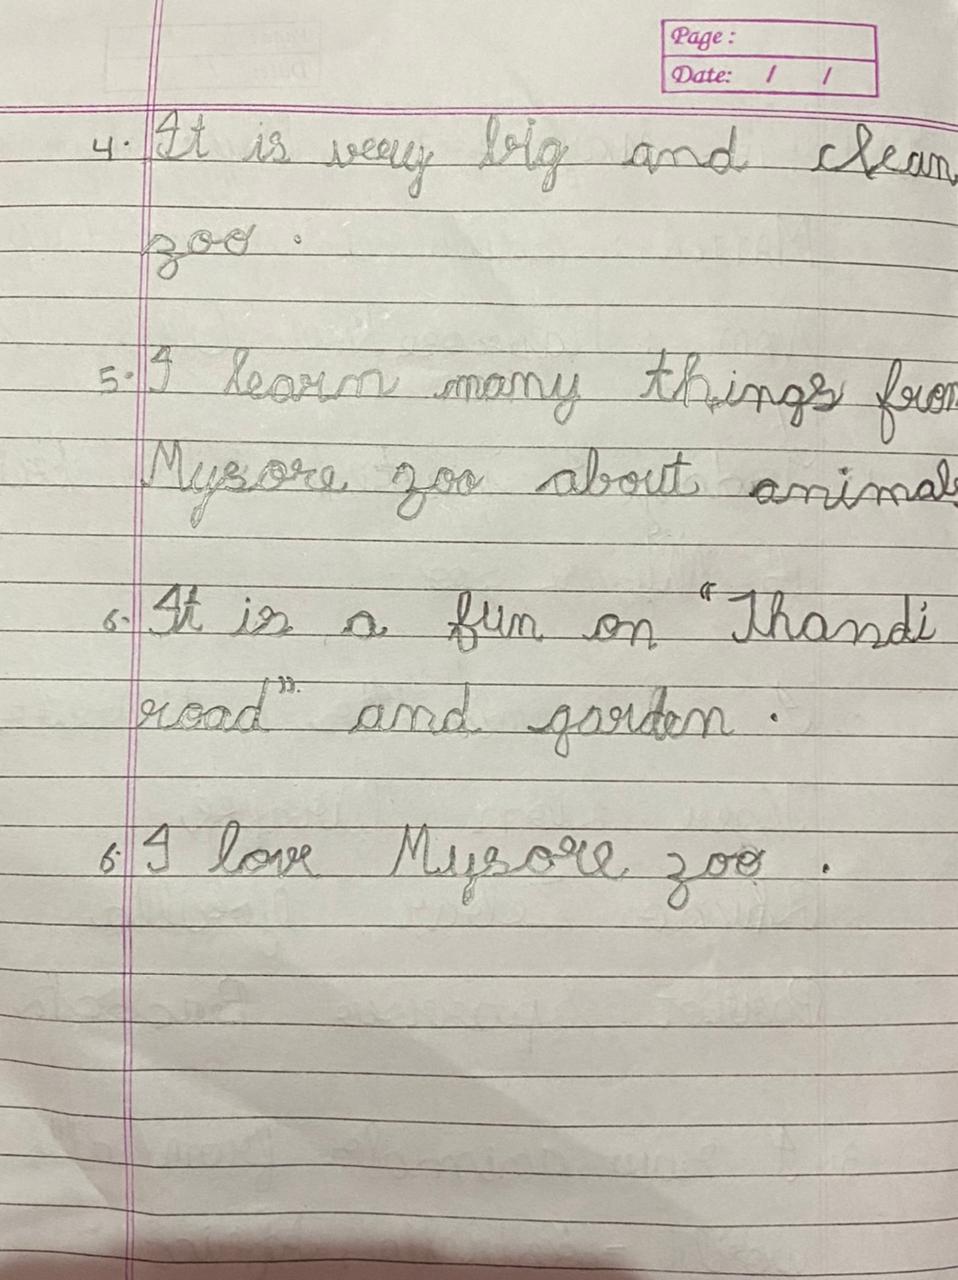 Page:
Date: / /
4. It is very big and clean
zoo.
5. I learn many things from
Mysore zoo about animals
6. It is a fun on "Thandi
road". and garden.
6. I love Mysore zoo.